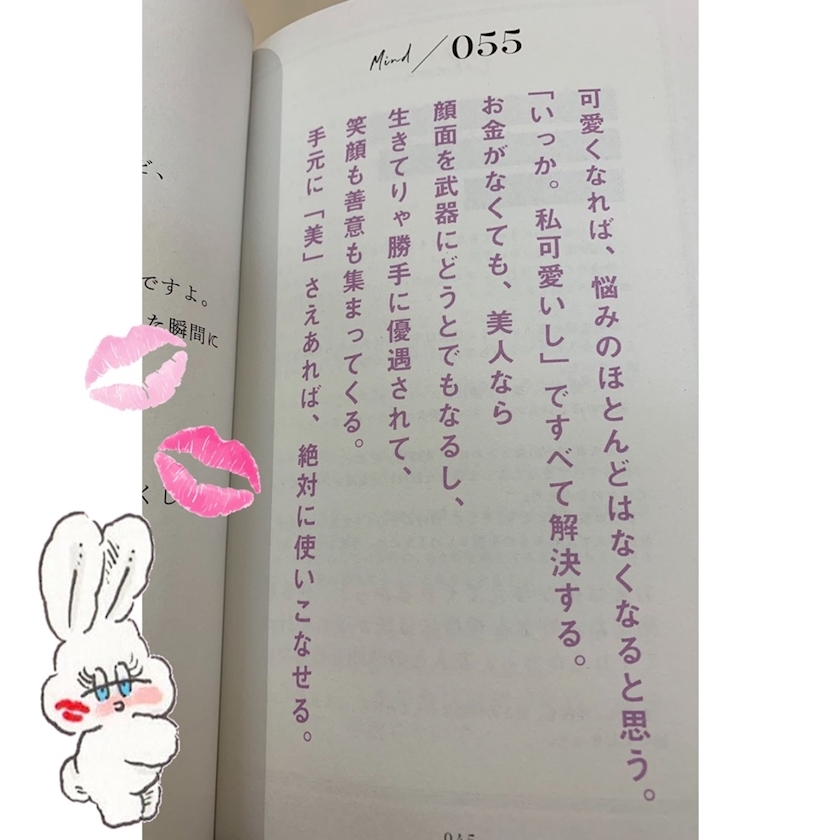 Mind / 055
可愛くなれば、悩みのほとんどはなくなると思う。
「いっか。私可愛いし」ですべて解決する。
お金がなくても、美人なら
顔面を武器にどうとでもなるし、
生きてりゃ勝手に優遇されて、
笑顔も善意も集まってくる。
手元に「美」さえあれば、絶対に使いこなせる。
ですよ。
た瞬間に
くし